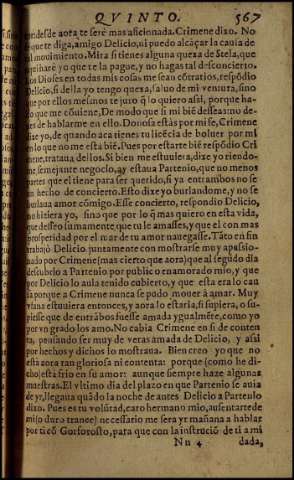 QVINTO. 567
desde aora te serè mas aficionada. Crimene dixo. No
que te diga, amigo Delicio, ni puedo alcãçar la causa de
mouimiento. Mira si tienes alguna quexa de Stela, que
harè yo que te la pague, y no hagas tal desconcierto.
Los Dioses en todas mis cosas me seã cõtrarios, respõdio
Delicio, si della yo tengo quexa, saluo de mi ventura, sino
que por ellos mesmos te juro q̃ lo quiero assi, porque ha-
que me cõuiene. De modo que si mi biẽ desseas no de-
ues de hablarme en ello. Donosa estàs por mi fe, Crimene
dize yo, de quando aca tienes tu licẽcia de boluer por mi
en lo que no me està biẽ. Pues por estarte biẽ respõdio Cri
mene, trataua dellos. Si bien me estuuiera, dixe yo riendo-
me semejante negocio, ay estaua Partenio, que no menos
partes que el tiene para ser querido, si ya entrambos no se
han hecho de concierto. Esto dixe yo burlandome, y no se
burlaua amor cõmigo. Esse concierto, respondio Delicio,
no hiziera yo, sino que por lo q̃ mas quiero en esta vida,
que desseo sumamente, que tu le amasses, y que el con mas
prosperidad por el mar de tu amor nauegasse. Tãto en fin
trabajò Delicio juntamente con mostrarse muy apassio-
nado por Crimene (mas cierto que aora) que al segũdo dia
descubrio a Partenio por publico enamorado mio, y que
por Delicio lo auia tenido cubierto, y que esta era lo cau
sa porque a Crimene nunca se pudo mouer à amar. Muy
vfana estuuiera entonces, y aora lo estaria, si supiera, o su-
piesse que de entrãbos fuesse amada ygualmẽte, como yo
por vn grado los amo. No cabia Crimene en si de conten
ta, pensando ser muy de veras amada de Delicio, y assi
por hechos y dichos lo mostraua. Bien creo yo que no
esta aora tan gloriosa ni contenta: porque (como he di-
cho) esta frio en su amor: aunque siempre haze algunas
muestras. El vltimo dia del plazo en que Partenio se auia
de yr, llegaua quãdo la noche de antes Delicio a Partenio
dixo. Pues es tu volũtad, caro hermano mio, ausentarte de
mi (o duro trance) necessario me sera yr mañana a hablar
por ti cõ Gorforosto, para que con la instruciõ de ti a mi
Nn 4 dada,